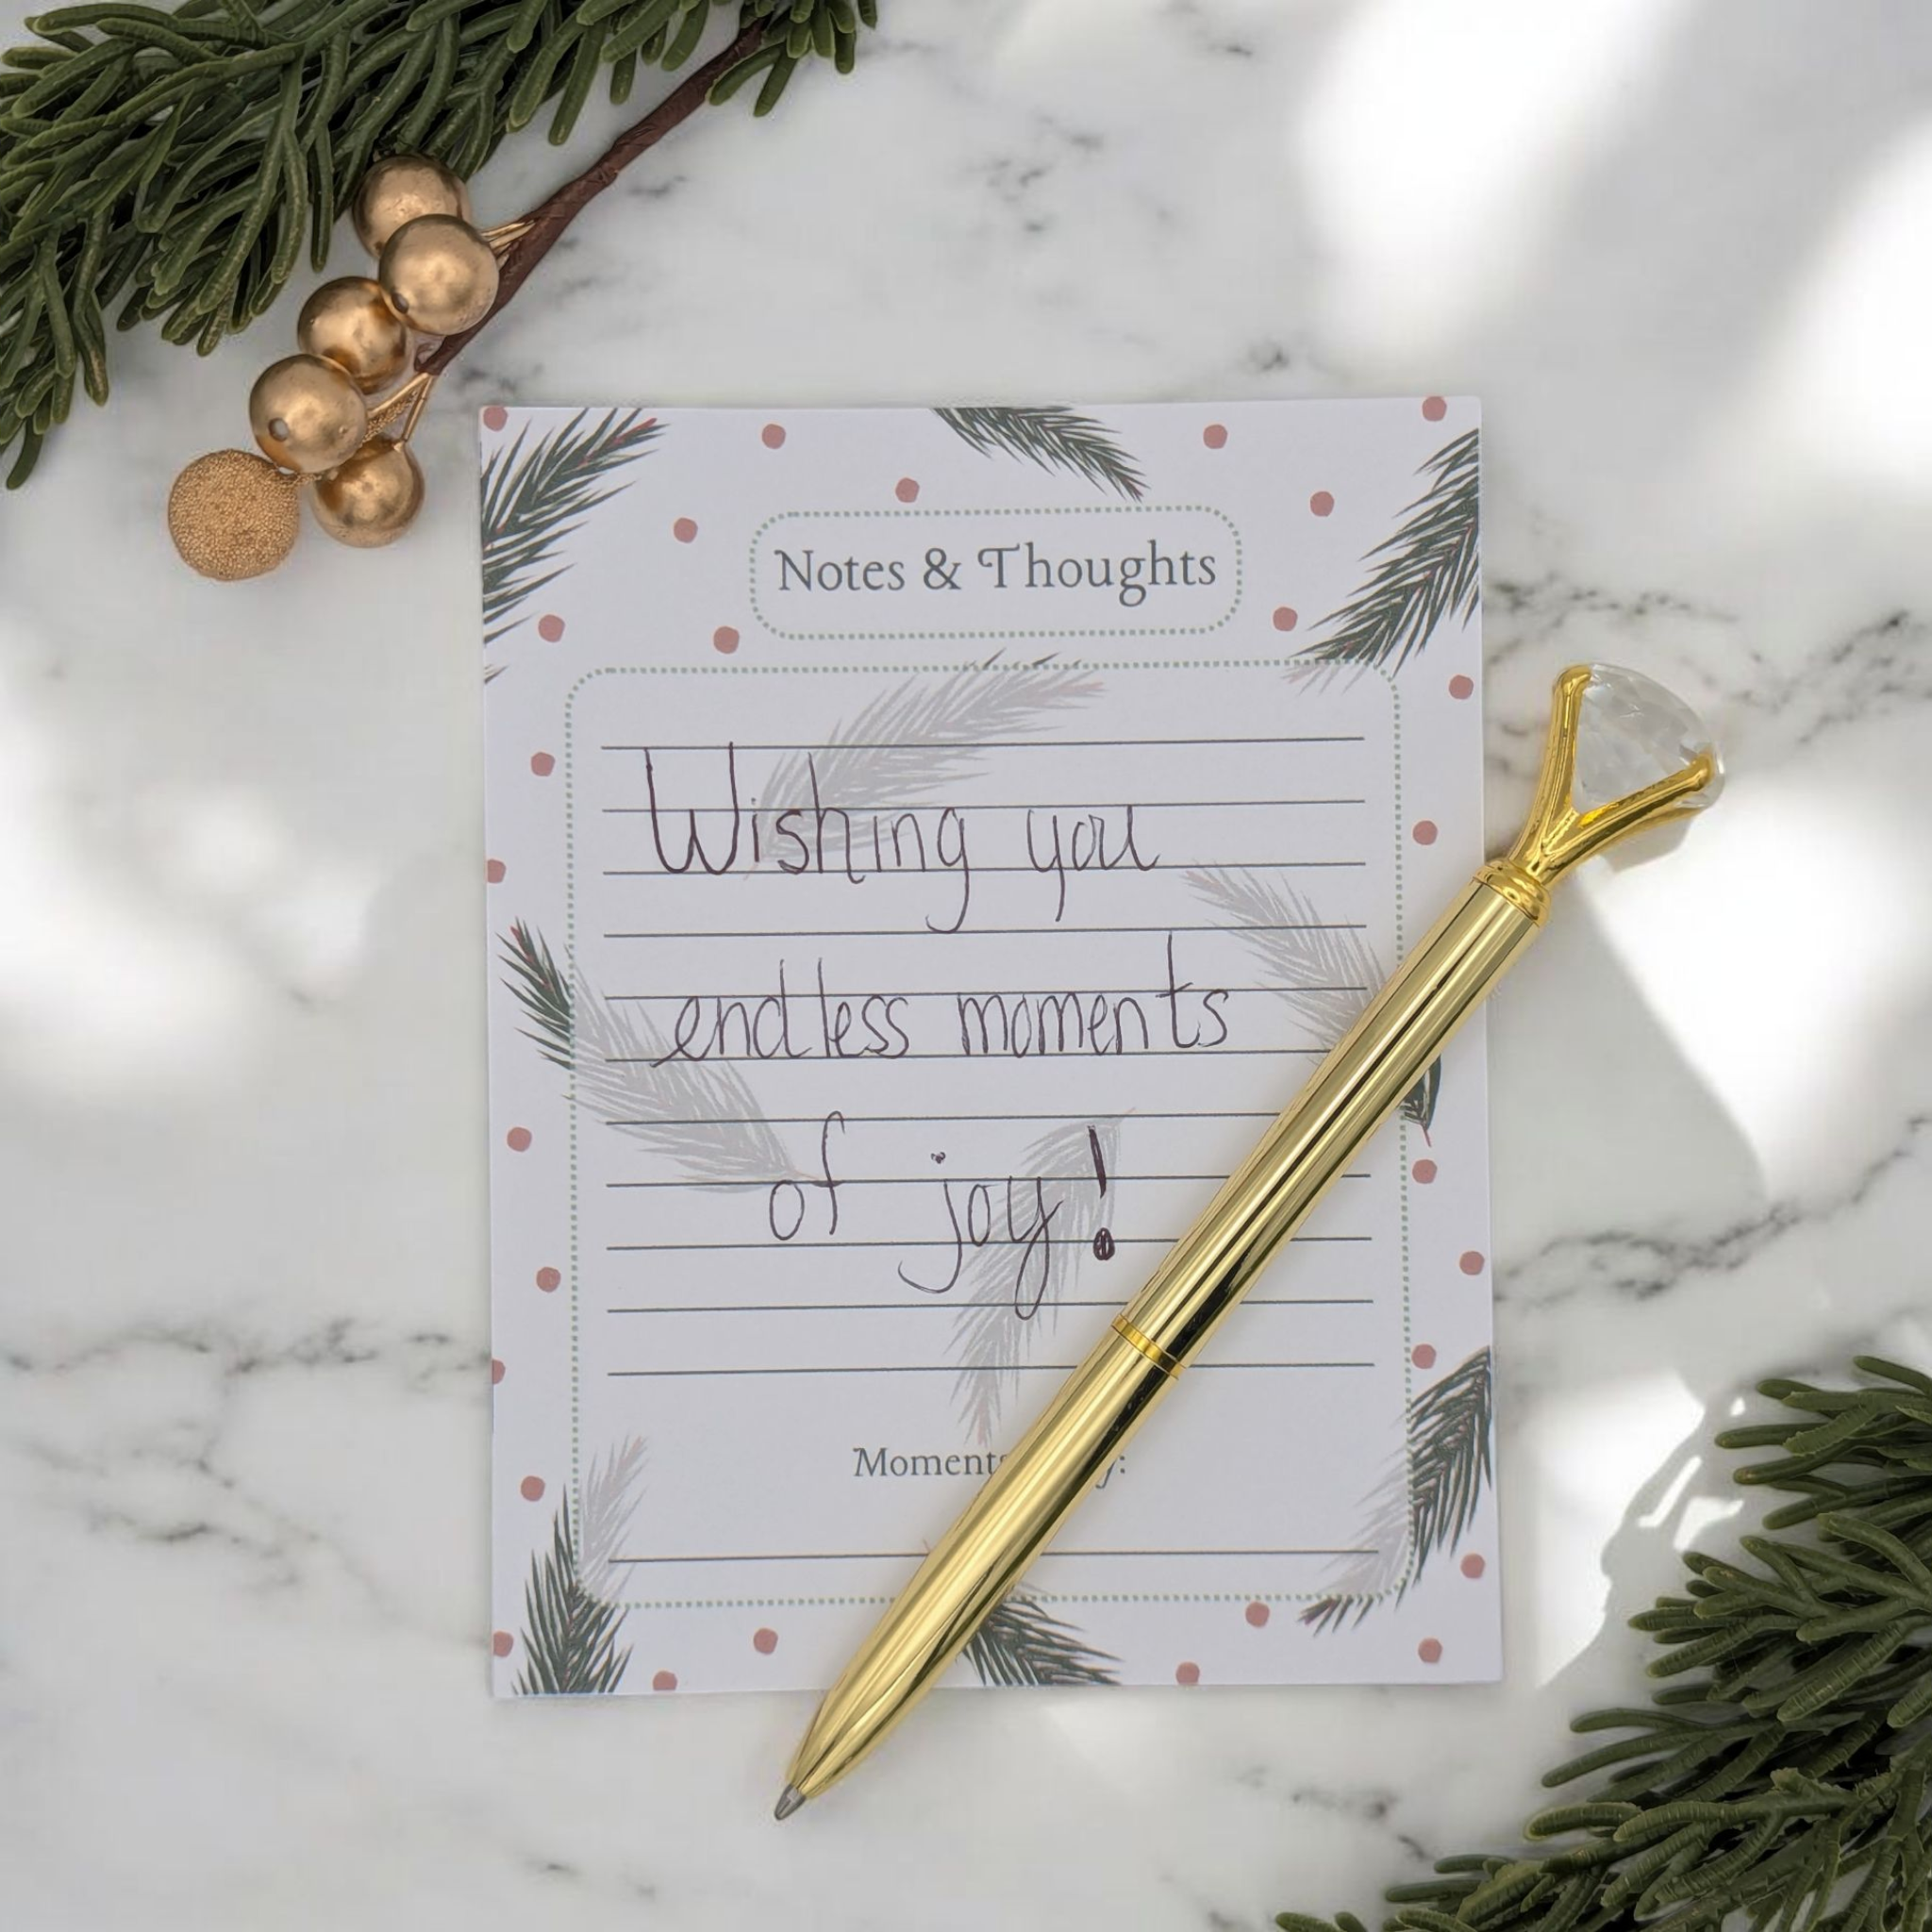 Notes & Thoughts
Wishing you
endless moments
of joy!
Moments